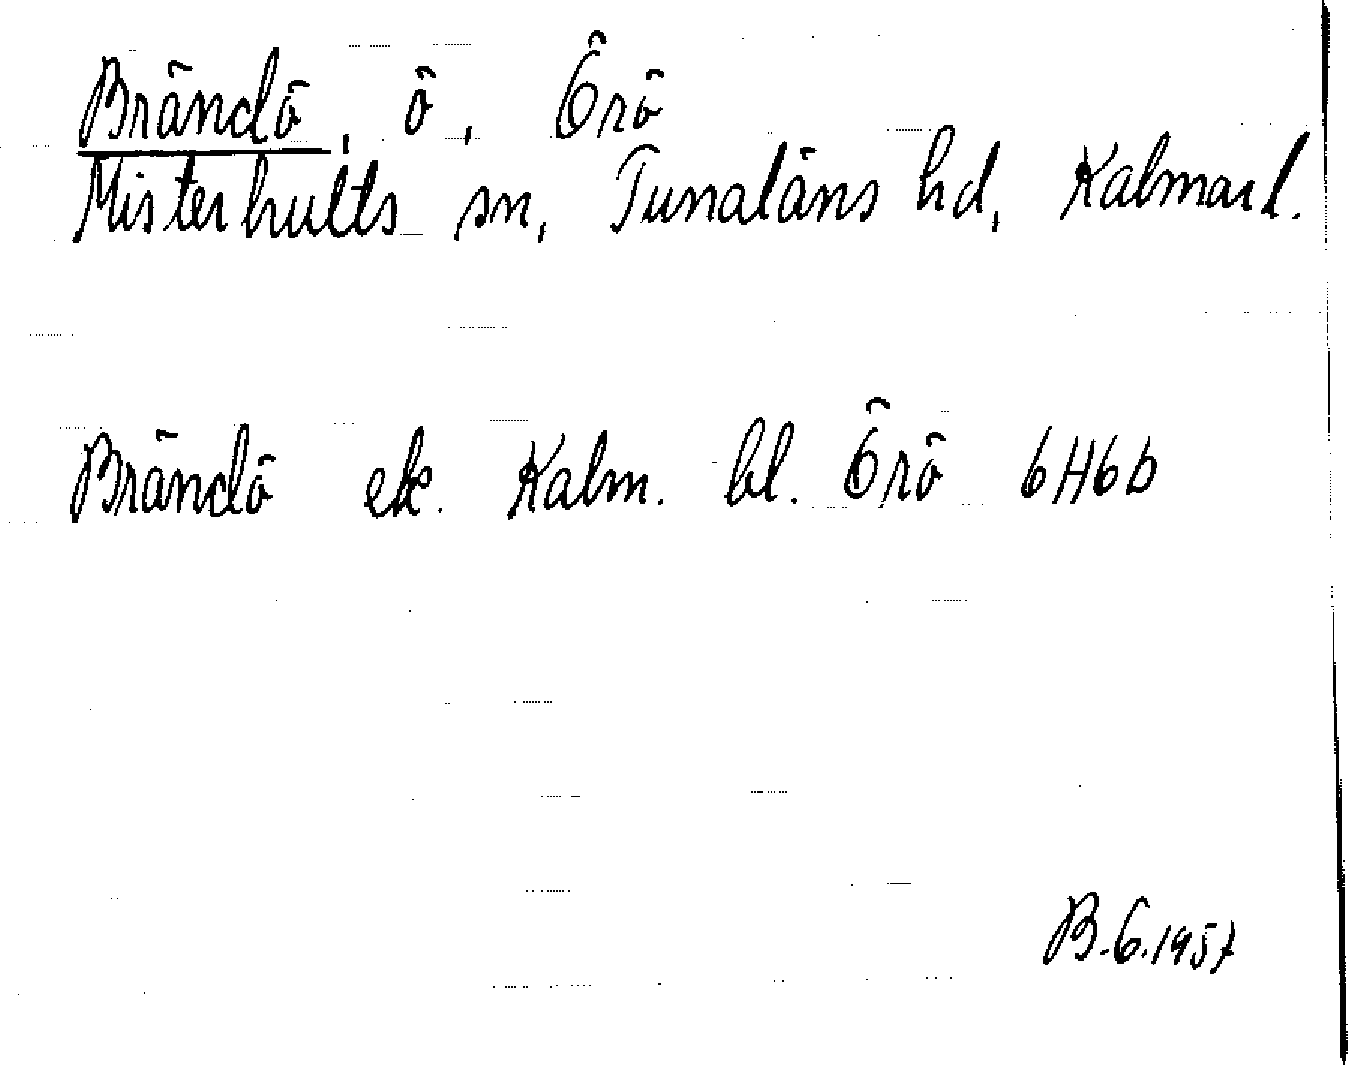 Brändö, ö, Örö
Misterhults sn, Tunaläns hd, Kalmar l.
Brändö ek. Kalm. bl. Örö 6H6b
B.G.1957